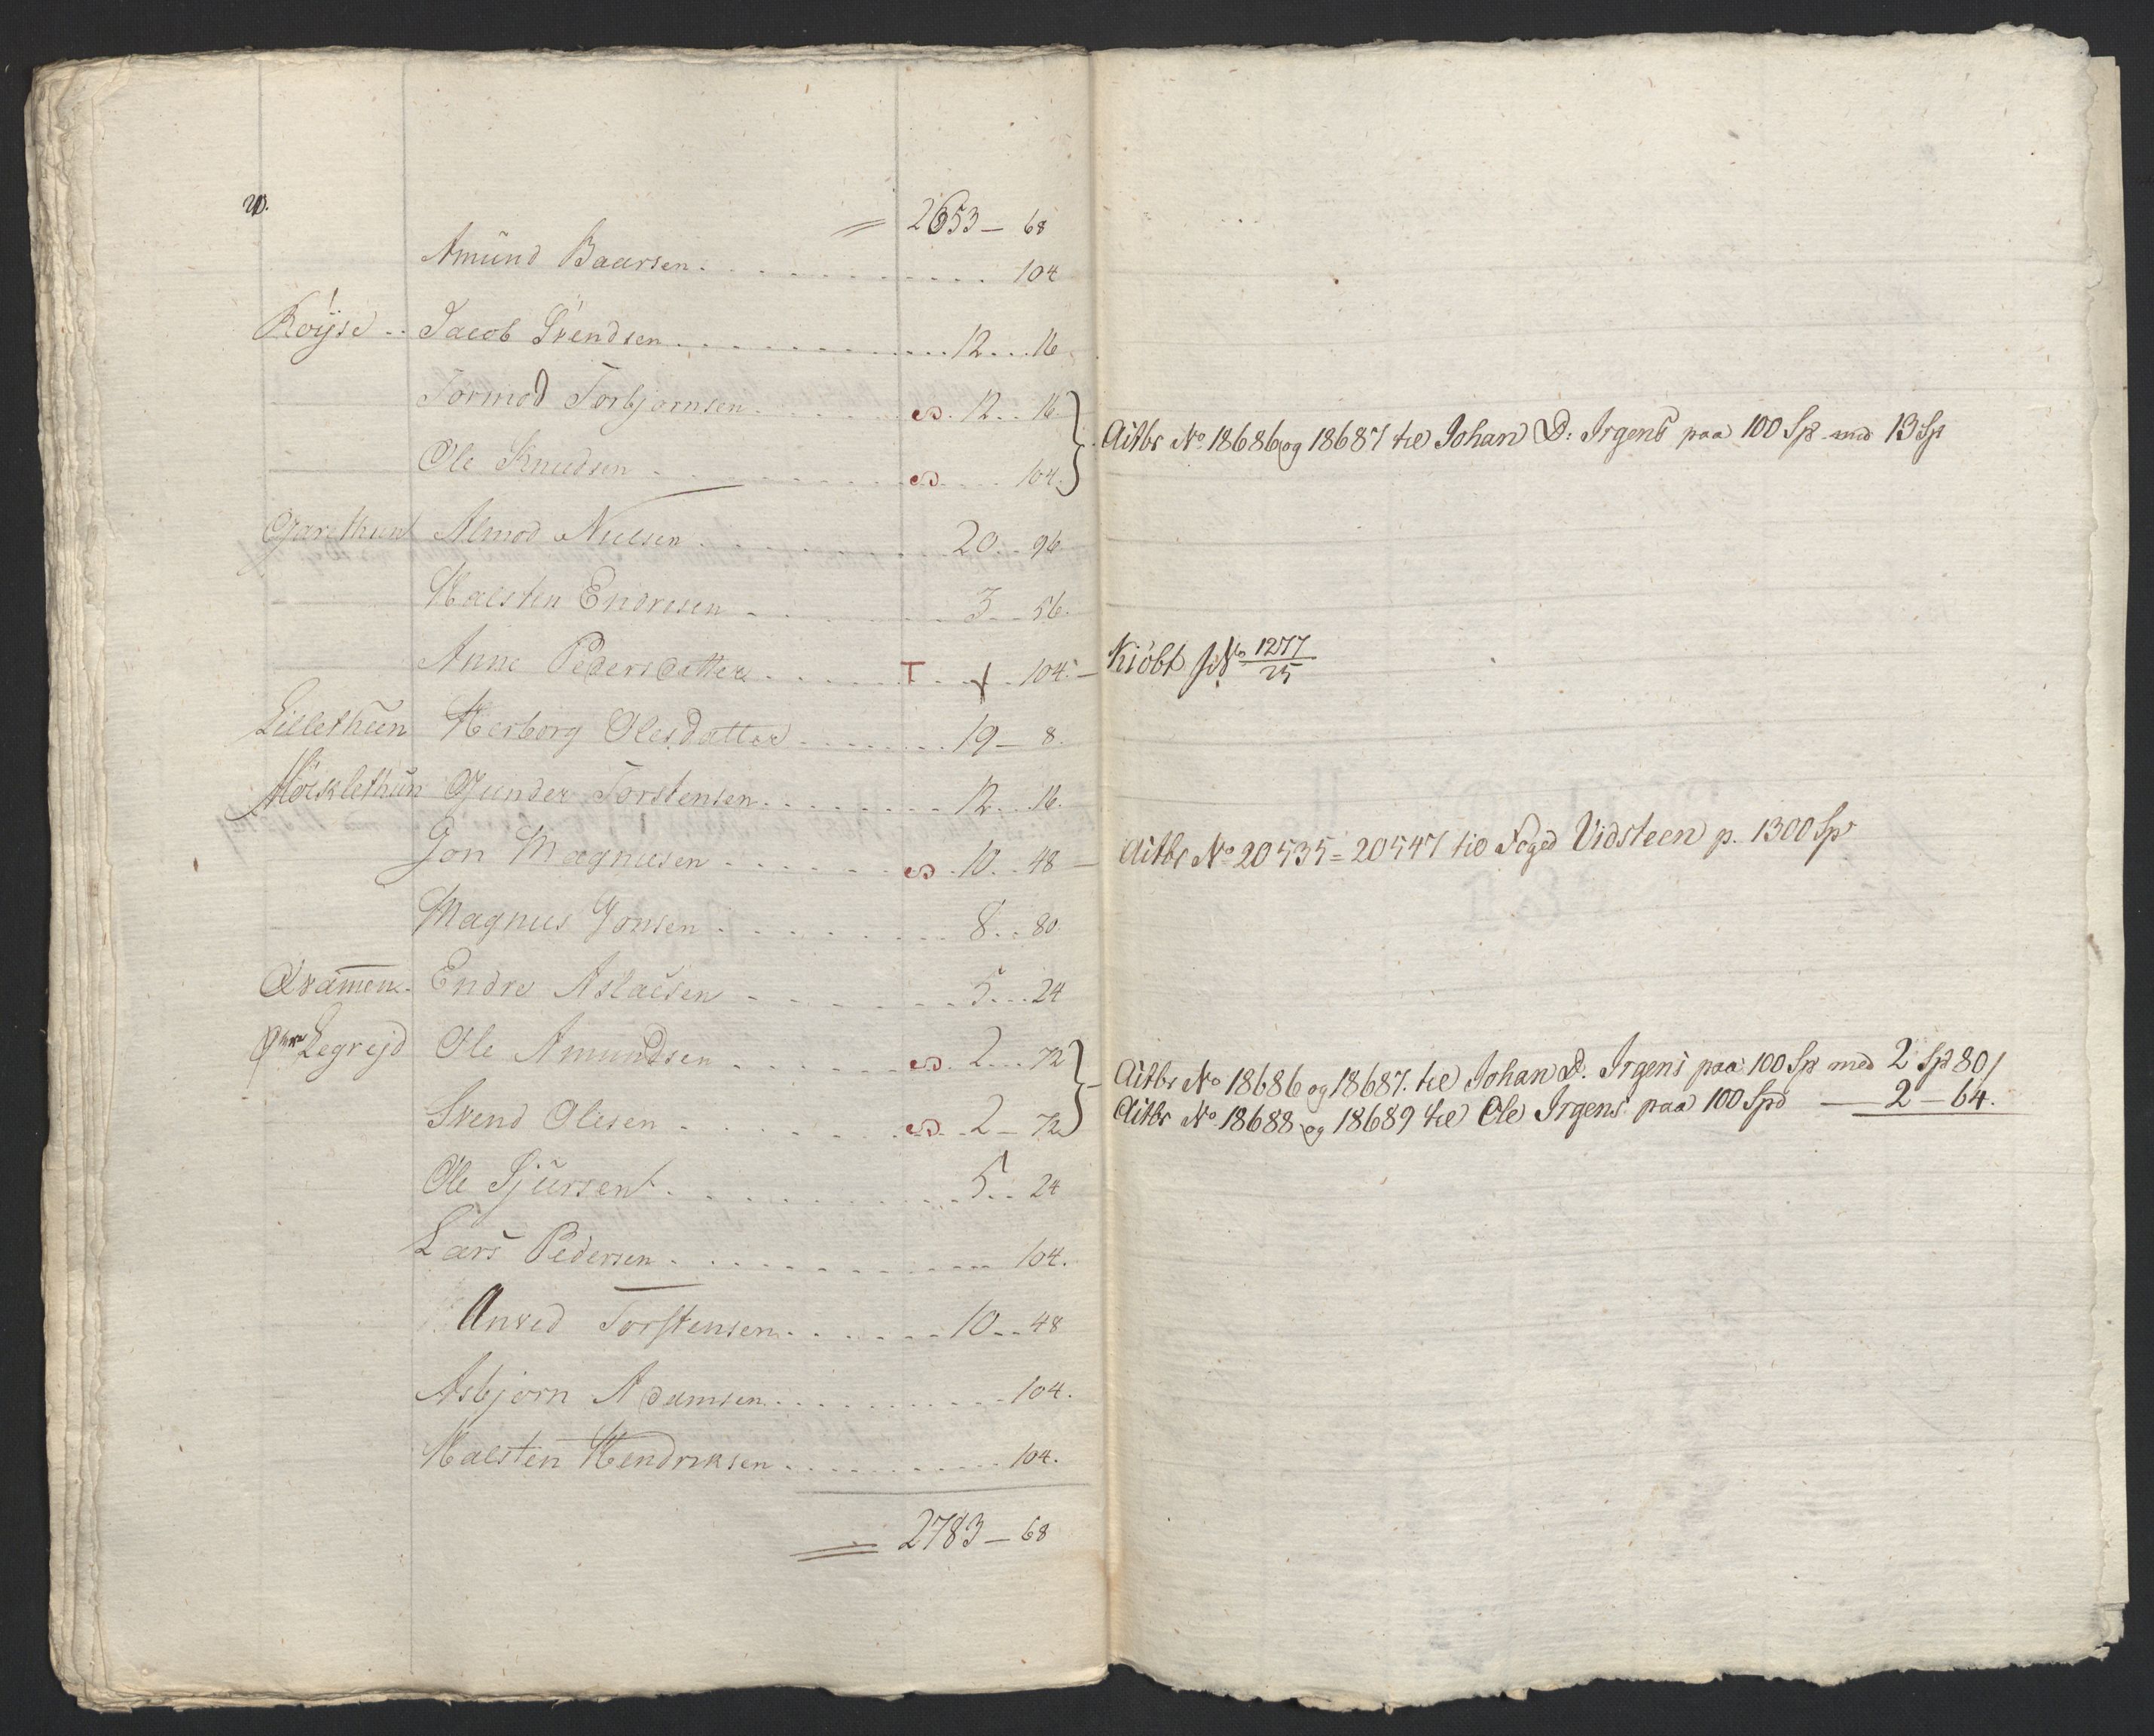 20.
2653 – 68
Amund Baarsen . . . . 104
Röÿse .. Jacob Svendsen . . . . 12 . . . 16
Tormod Torbjörnsen . . . . 12 . . 16
Aitbr No 18686 og 18687 til Johan D. Irgens paa 100 Sp med 13 Sp
Ole Knudsen . . . . 104.
Garethun Almod Nielsen . . . . 20 . . 96
Halsten Endresen . . . . 3 . . 56.
Anne Pedersdatter . . . . T . 104. –
Kiöbt No 1277/25
Lillethun Herborg Olesdatter . . . . 19 – 8.
Möcklethun Gunder Torstensen . . . . 12 . . 16.
Jon Magnusen . . . . 10 . . 48 –
Aitbr No 20535 = 20547 til Foged Vidsteen p. 1300 Sp
Magnus Jonsen . . . . 8 . . 80.
Qvammen. Endre Aslacsen . . . . 5 . . . 24
Legrejd Ole Amundsen . . . . 2 . . . 72
Aitbr No 18686 og 18687. til Johan D. Irgens paa 100 Sp med 2 Sp 80
Aitbr No 18688 og 18689 til Ole Irgens paa 100 Spd – 2 – 64.
Svend Olesen . . . . 2 – 72
Ole Sjursen . . . . 5 . . 24
Lars Pedersen . . . . 104.
Anved Torstensen . . . . 10 . . 48
Asbjörn Adamsen . . . . 104.
Halsten Hendriksen . . . . 104.
2783 – 68